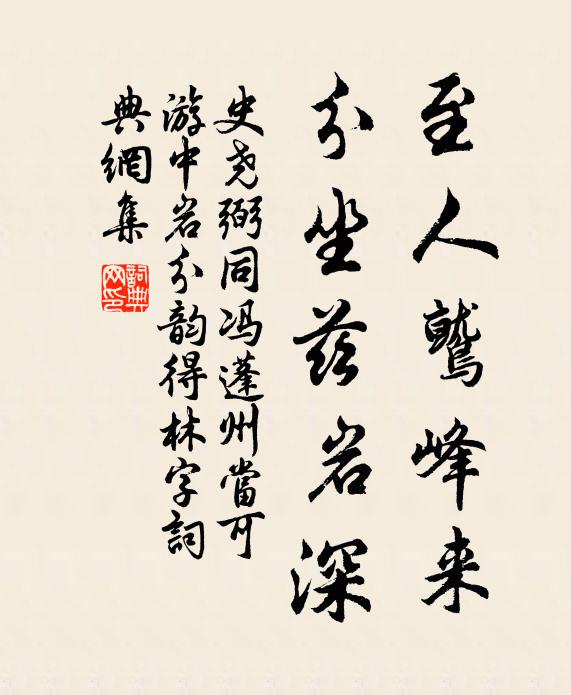 至人鷲峰来
分坐兹岩深
史尧弼同冯蓬州當可
游中岩分韵得林字詞
典網集
詞典
网印